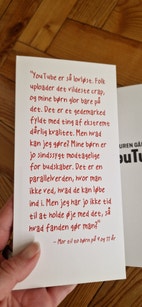 "YouTube er så lovløst. Folk
uploader det vildeste crap,
og mine børn glor bare på
det. Det er et gedemarked
fyldt med ting af ekstremt
dårlig kvalitet. Men hvad
kan jeg gøre? Mine børn er
jo sindssygt modtagelige
for budskaber. Det er en
parallelverden, hvor man
ikke ved, hvad de kan løbe
ind i. Men jeg har jo ikke tid
til at holde øje med det, så
hvad fanden gør man?"
- Mor til to børn på 9 og 11 år
UREN GÅ
ouTu